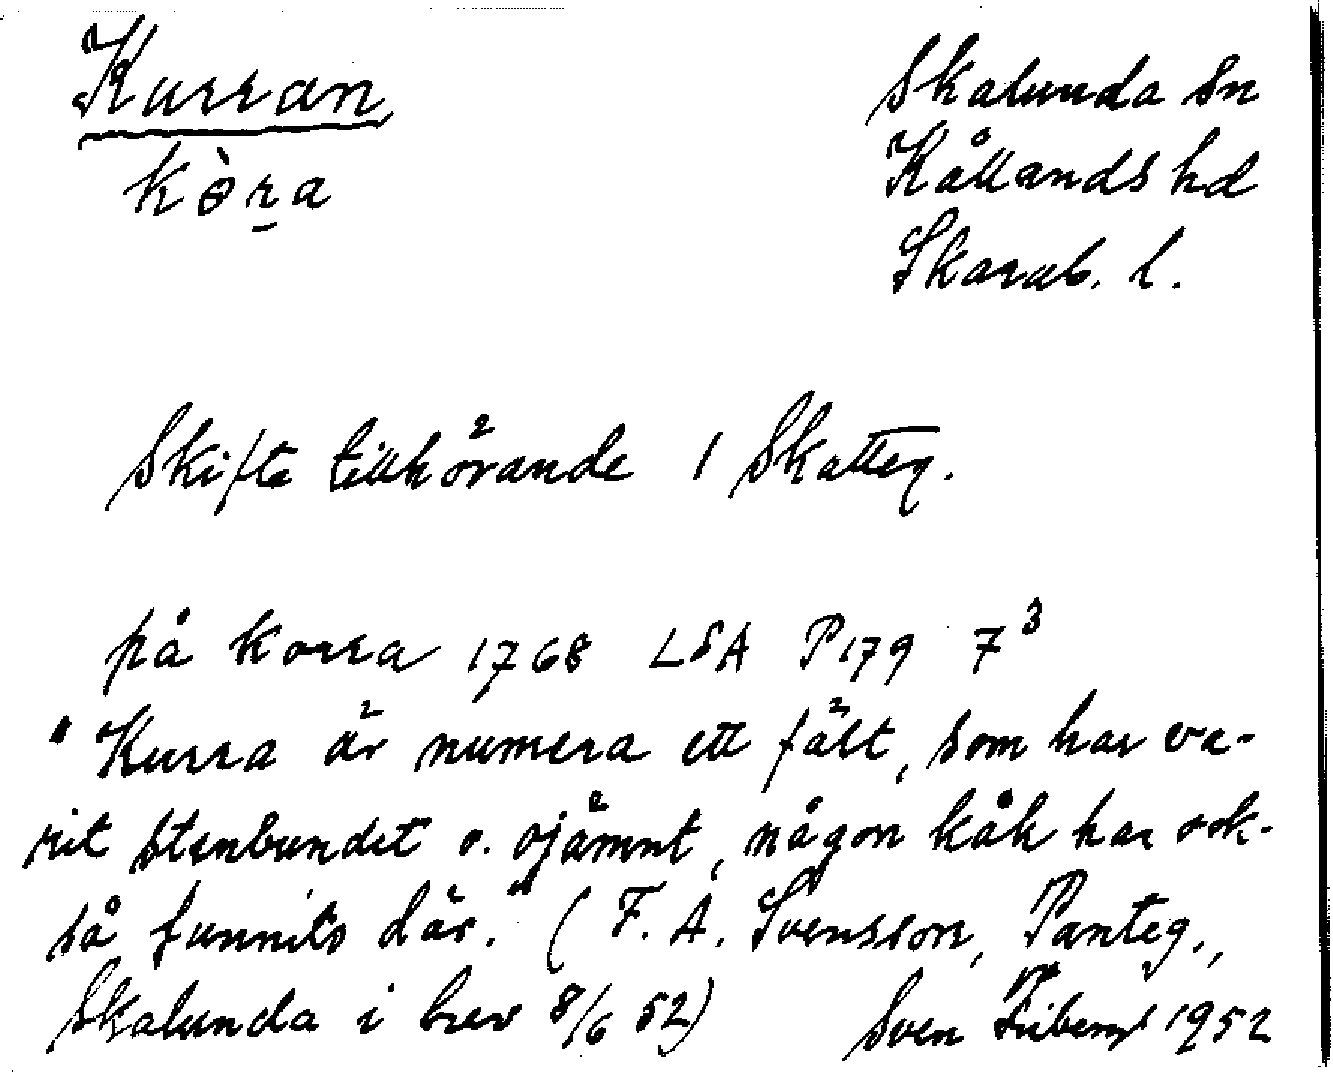 Kurran
kòr̠a
Skalunda sn
Kållands hd
Skarab. l.
Skifte tillhörande 1 Skatteg.
på korra 1768 LSA P179 7³
"Kurra är numera ett fält, som har va-
rit stenbundet o. ojämnt, någon kåk har ock-
så funnits där." (F. A. Svensson, Panteg.,
Skalunda i brev 8/6 52)
Sven Fribergh 1952